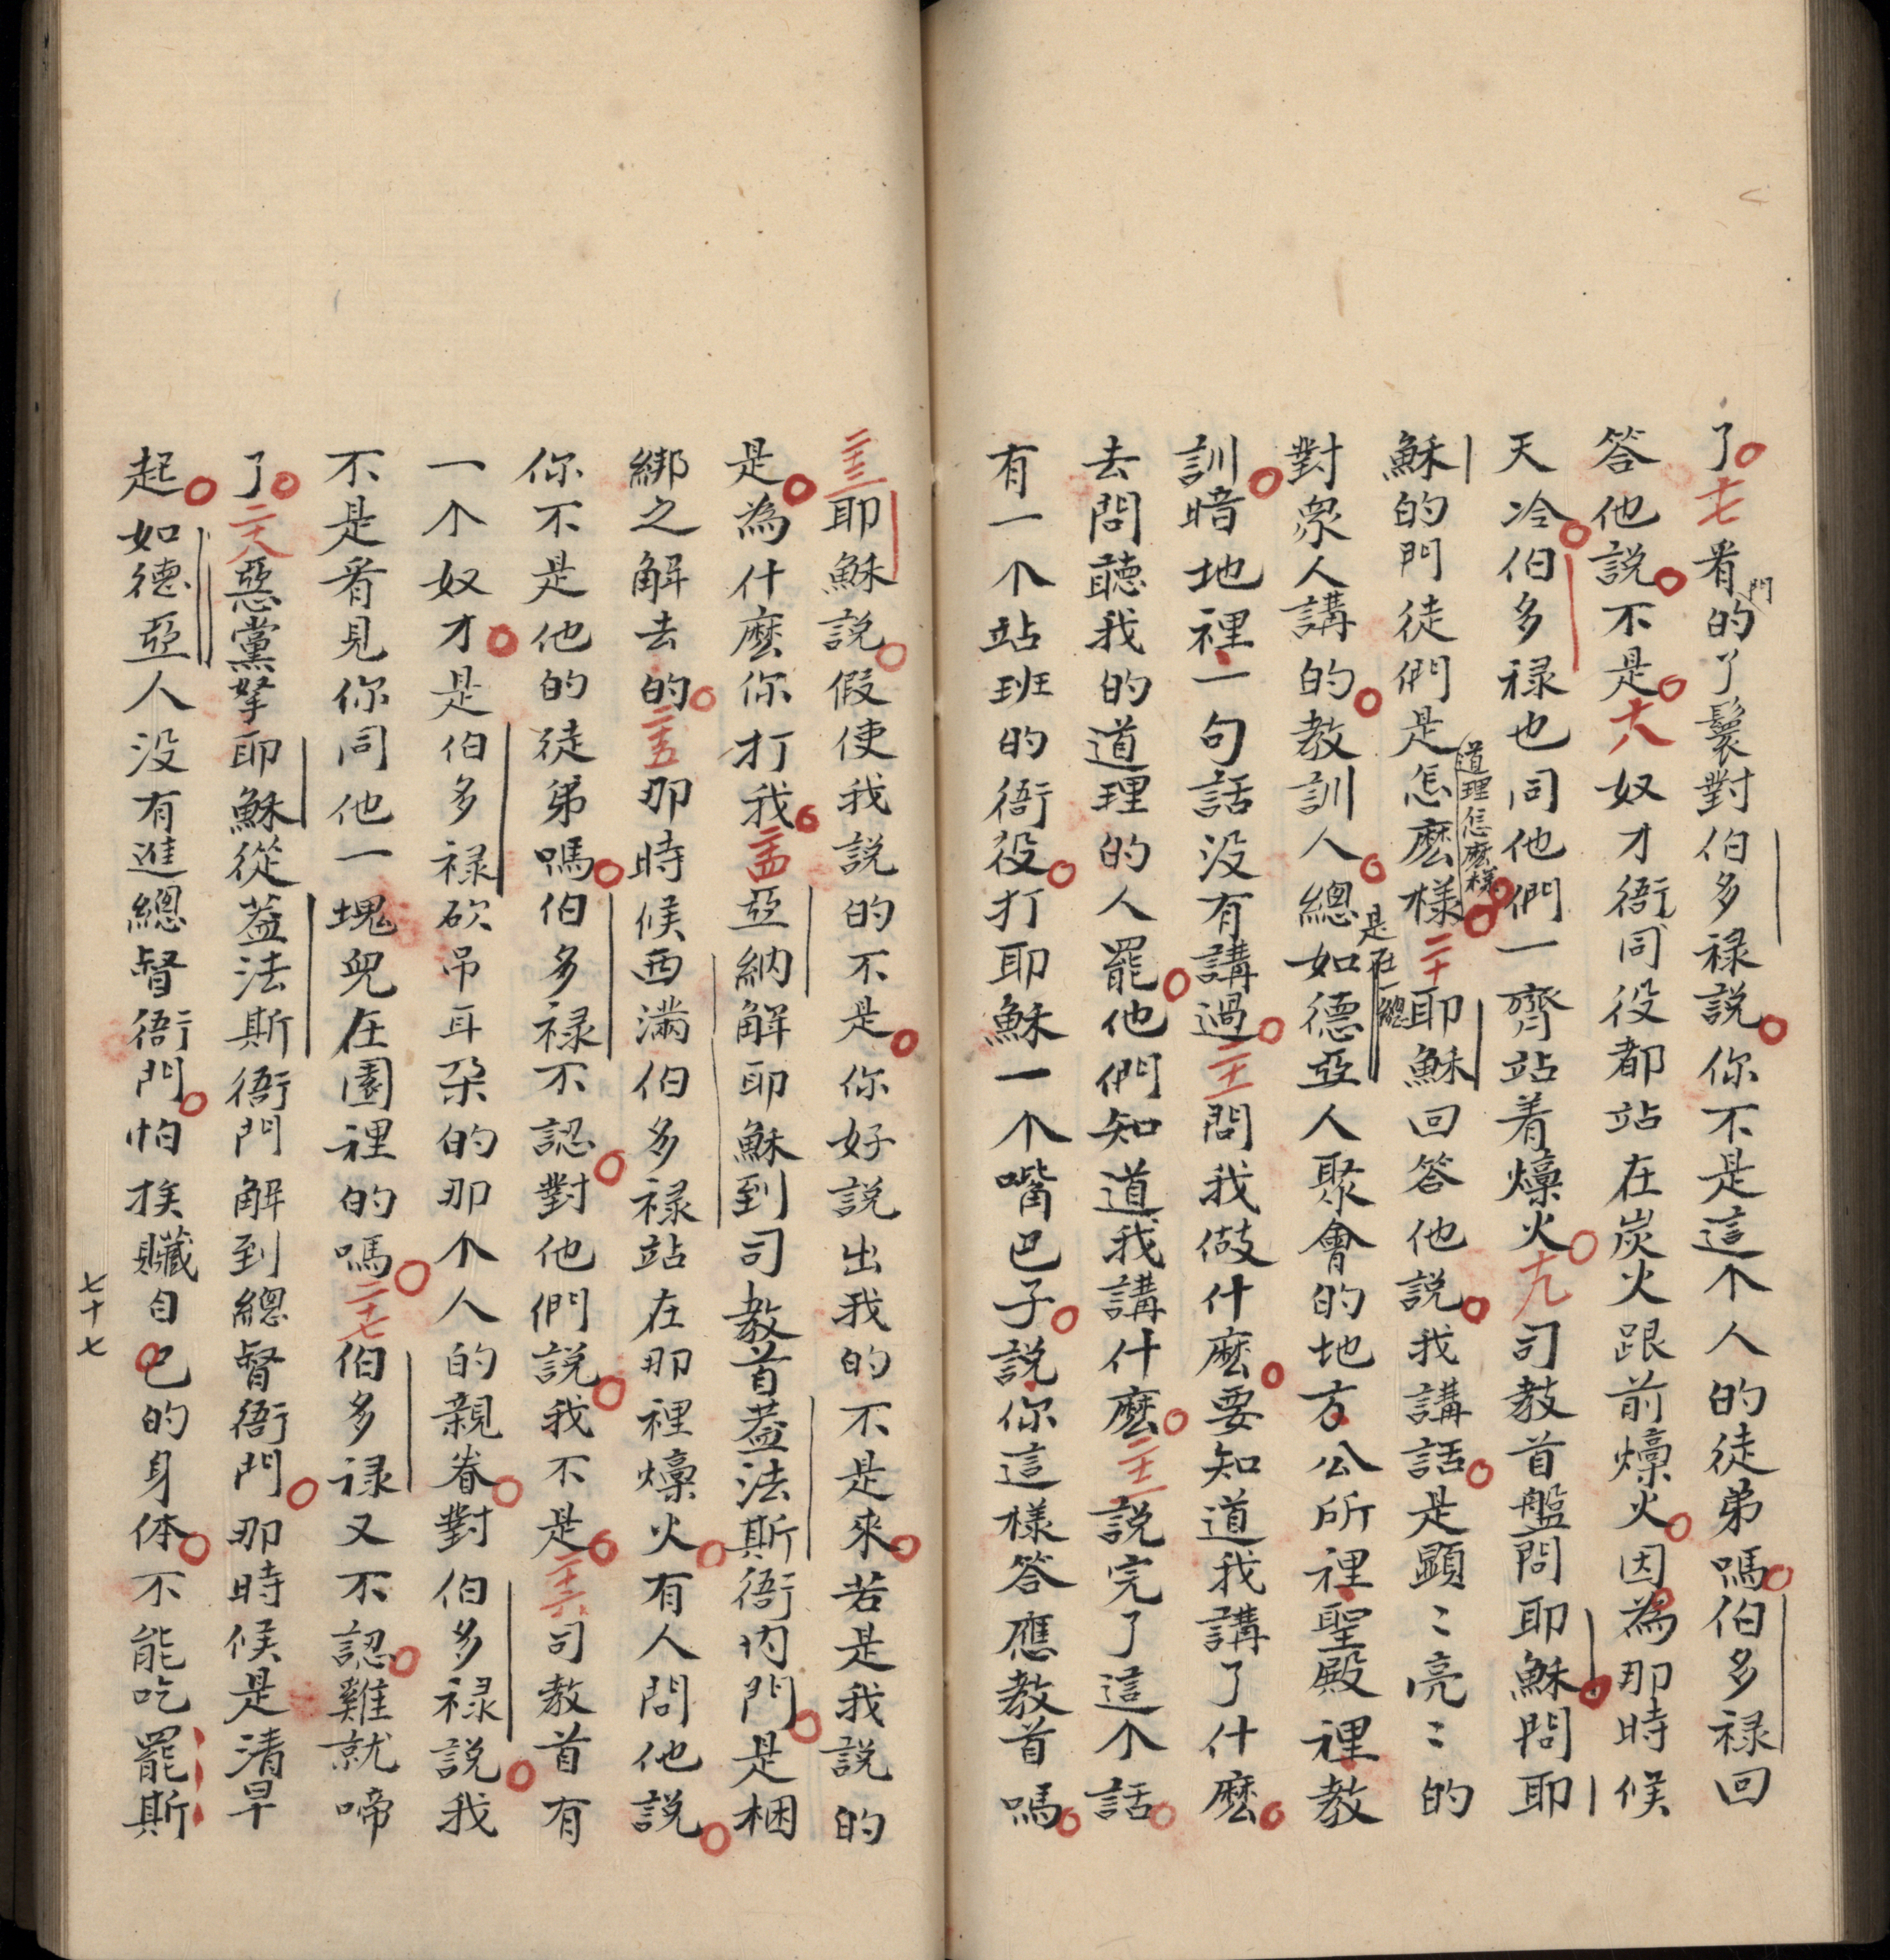 了十七看門的丫鬟對伯多禄説你不是這个人的徒弟嗎伯多禄回
答他説不是十八奴才衙同役都站在炭火跟前𤏪火因為那時候
天冷伯多禄也同他們一齊站着𤏪火十九司教首盤問耶穌問耶
穌的門徒們是怎麽樣二十耶穌回答他説我講話是顕〻亮〻的
道理怎麽樣
對衆人講的教訓人總如德亞人聚會的地方公所裡聖殿裡教
是在一總
訓暗地裡一句話没有講過二十一問我做什麽要知道我講了什麽
去問聽我的道理的人罷他們知道我講什麽二十二説完了這个話
有一个站班的衙役打耶穌一个嘴巴子説你這様答應教首嗎
二十三耶穌説假使我説的不是你好説出我的不是來若是我説的
是為什麽你打我二十四亞納解耶穌到司教首盖法斯衙内門是梱
綁之解去的二十五那時候西满伯多禄站在那裡𤏪火有人問他説
你不是他的徒弟嗎伯多禄不認對他們説我不是二十六司教首有
一个奴才是伯多禄砍吊耳朶的那个人的親眷對伯多禄説我
不是看見你同他一塊兒在園裡的嗎二十七伯多禄又不認雞就啼
了二十八惡黨拏耶穌從盖法斯衙門解到總督衙門那時候是清早
起如德亞人没有進總督衙門怕挨贓自己的身体不能吃罷斯
七十七